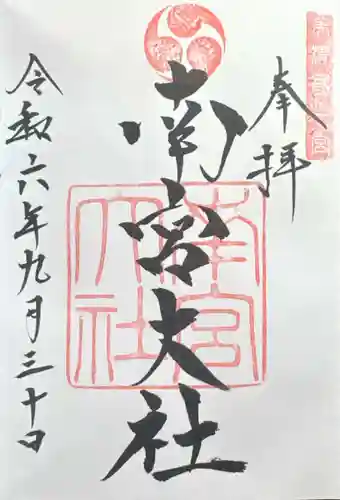 奉拝
南宮大社
南宮大社
令和六年九月三十日